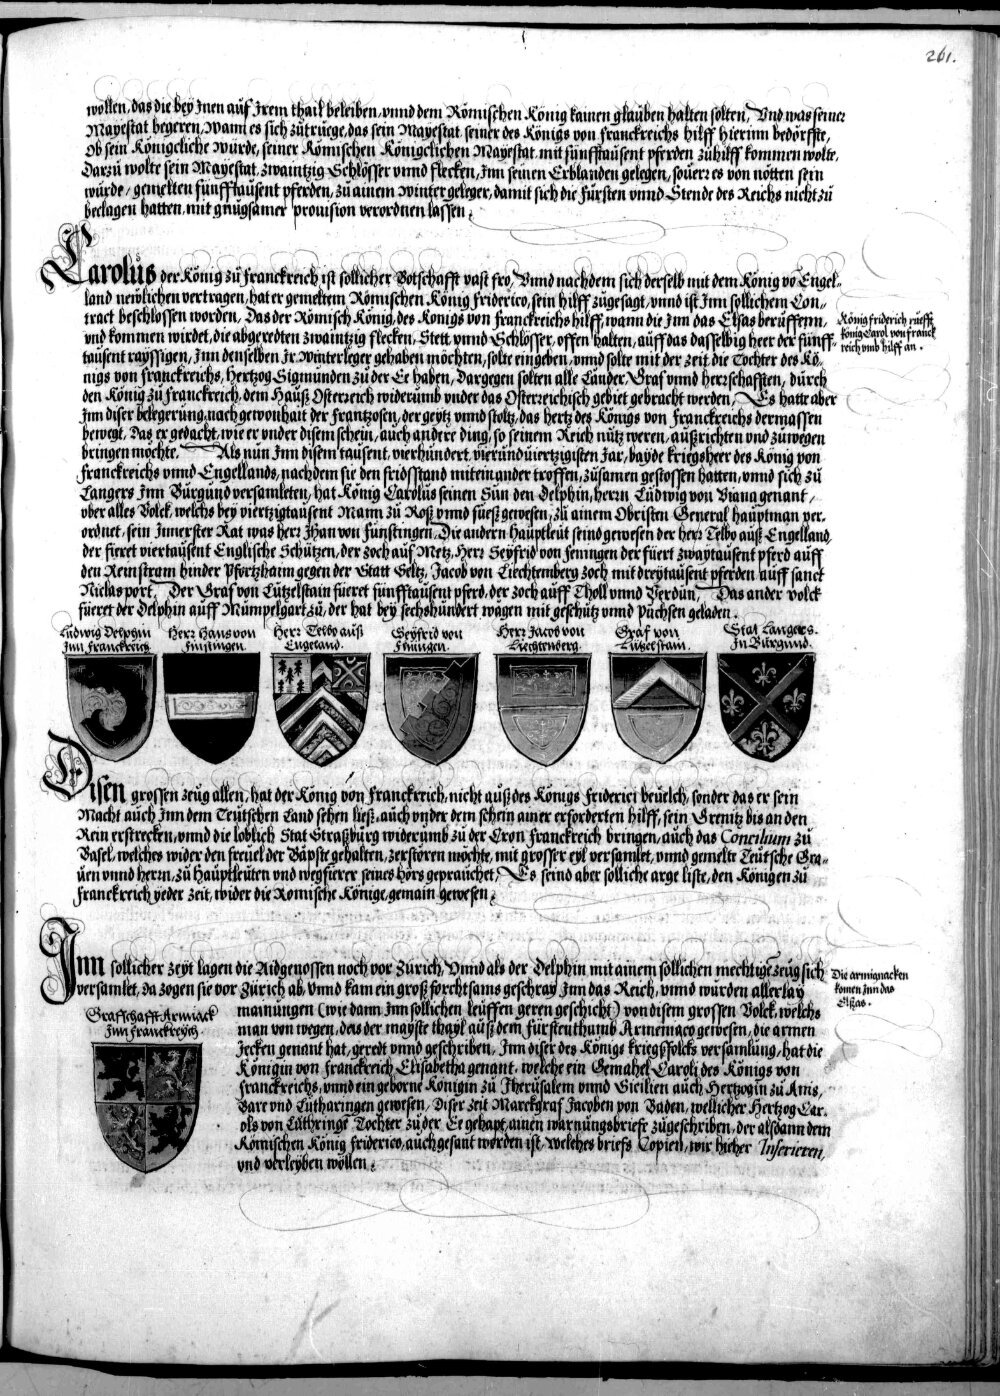 261.
wollen, das die bey Inen auf Irem thail beleiben, vnnd dem Römischen König kainen glauben halten solten, Vnd was seiner
Mayestat begeren, Wann es sich zütrüege, das sein Mayestat, seiner des Königs von franckreichs hilff hierinn bedörffte,
Ob sein Königcliche würde, seiner Römischen Königclichen Mayestat, mit fünfftausent pferden zühilff kommen wolte,
Darzü wolte sein Mayestat, zwaintzig Schlösser vnnd flecken, Inn seinen Erblanden gelegen, souerr es von nötten sein
würde, gemelten fünfftausent pferden, zü ainem Wintergeleger, damit sich die Fürsten vnnd Stende des Reichs nicht zü
beclagen hatten, mit gnügsamer prouision verordnen lassen.
Carolüs der König zü Franckreich ist sollicher Botschafft vast fro, Vnnd nachdem sich derselb mit dem König vo Engel-
land newlichen vertragen, hat er gemeltem Römischen König Friderico, sein hilff zügesagt, vnnd ist Inn sollichem Con-
tract beschlossen worden, Das der Römisch König, des Königs von Franckreichs hilff, wann die Inn das Elsas berüffenn,
vnd kommen wirdet, die abgeredten zwaintzig flecken, Stett vnnd Schlösser, offen halten, auff das dasselbig heer der fünff-
tausent raysigen, Inn denselben Ir Winterleger gehaben möchten, solte eingeben, vnnd solte mit der zeit, die Tochter des Kö-
nigs von franckreichs, Hertzog Sigmunden zü der Ee haben, Dargegen solten alle Länder, Graf vnnd herrschafften, dürch
den König zü Franckreich, dem Hauß Österreich widerümb vnder das Österreichisch gebiet gebracht werden, Es hatte aber
Inn diser belegerüng, nach gewonhait der Frantzosen, der geytz vnnd stoltz, das hertz des Königs von Franckreichs dermassen
bewegt, Das er gedacht, wie er vnder disem schein, auch andere ding, so seinem Reich nütz weren, außrichten vnd züwegen
bringen möchte. Als nün Inn disem tausent, vierhündert, vieründviertzigisten Jar, bayde kriegsheer des König von
Franckreichs vnnd Engellands, nachdem sie den fridsstand miteinander troffen, züsamen gestossen hatten, vnnd sich zü
Langers Inn Bürgünd versamleten, hat König Carolüs seinen Sün den Delphin, herrn Lüdwig von Viana genant,
vber alles Volck, welchs bey viertzigtausent Mann zü Roß vnnd füesß gewesen, zü ainem Obristen General hauptman ver-
ordnet, sein Innerster Rat was herr Jhan von Fünstingen, Die andern Hauptleüt seind gewesen der herr Telbo auß Engelland,
der füeret viertausent Englische Schützen, der zoch auf Metz, Herr Seyfrid von feningen der füert zwaytausent pferd auff
den Reinstram hinder Pfortzhaim gegen der Statt Seltz, Jacob von Liechtemberg zoch mit dreytausent pferden auff sanct
Niclasport, Der Graf von Lützelstain füeret fünfftausent pferd, der zoch auff Tholl vnnd Verdün, Das ander volck
füeret der Delphin auff Mümpelgart zü, der hat bey sechshündert wägen mit geschütz vnnd Püchsen geladen.
Ludwig Delphin Inn Franckreich
Herr Hans von Finstingen.
Herr Telbo auß Engeland.
Seyfrid von Finingen.
Herr Jacob von Liechtenberg.
Graf von Lützelstain.
Stat Langers. In Bürgund.
Disen grossen zeüg allen, hat der König von Franckreich, nicht auß des Königs Friderici beuelch, sonder das er sein
Macht auch Inn dem Teütschen Land sehen ließ, auch vnder dem schein ainer erforderten hilff, sein Grenitz bis an den
Rein erstrecken, vnnd die loblich Stat Straßbürg widerümb zü der Cron Franckreich bringen, auch das Concilium zü
Basel, welches wider den freuel der Bäpste gehalten, zerstören möchte, mit grosser eyl versamlet, vnnd gemelte Teütsche Gra-
uen vnnd herrn, zü Hauptleüten vnd wegfierer seines hörs gepraüchet, Es seind aber solliche arge liste, den Königen zü
Franckreich yeder zeit, wider die Romische Könige, gemain gewesen.
Inn sollicher zeyt lagen die Aidgenossen noch vor Zürich, Vnnd als der Delphin mit ainem sollichen mechtigē zeüg sich
versamlet, da zogen sie vor Zürich ab, Vnnd kam ein groß forchtsams geschray Inn das Reich, vnnd würden allerlay
mainüngen (wie dann Inn sollichen leüffen geren geschicht) von disem grossen Volck, welchs
man von wegen, das der mayste thayl auß dem Fürstenthumb Armeniaco gewesen, die armen
Jecken genant hat, geredt vnnd geschriben, Inn diser des Königs kriegßfolcks versamlüng, hat die
Königin von Franckreich Elisabetha genant, welche ein Gemahel Caroli des Königs von
Franckreichs, vnnd ein geborne Königin zü Jherüsalem vnnd Sicilien auch Hertzogin zü Ams,
Bare vnd Lütharingen gewesen, Diser zeit Marckgraf Jacoben von Baden, wellicher Hertzog Car-
ols von Lüthringē Tochter zü der Ee gehapt, ainen warnüngsbriefe zügeschriben, der alsdann dem
Römischen König Friderico, aüch gesant worden ist, Welches briefs Copien, wir hieher Inserieren,
vnd verleyben wöllen.
Graffschafft Armiack
Inn Franckreych.
König Friderich rüefft
könig Carol von Franck
reich vmb hilff an.
Die armianacken
komen Inn das
Elsas.